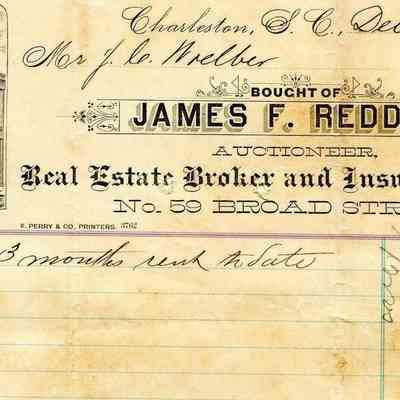 Charleston, S. C., Dec
Mr J. C. Woelber
BOUGHT OF
JAMES F. REDD
AUCTIONEER,
Real Estate Broker and Insu
No. 59 BROAD STR
E. PERRY & CO., PRINTERS. 3762
3 months rent to date